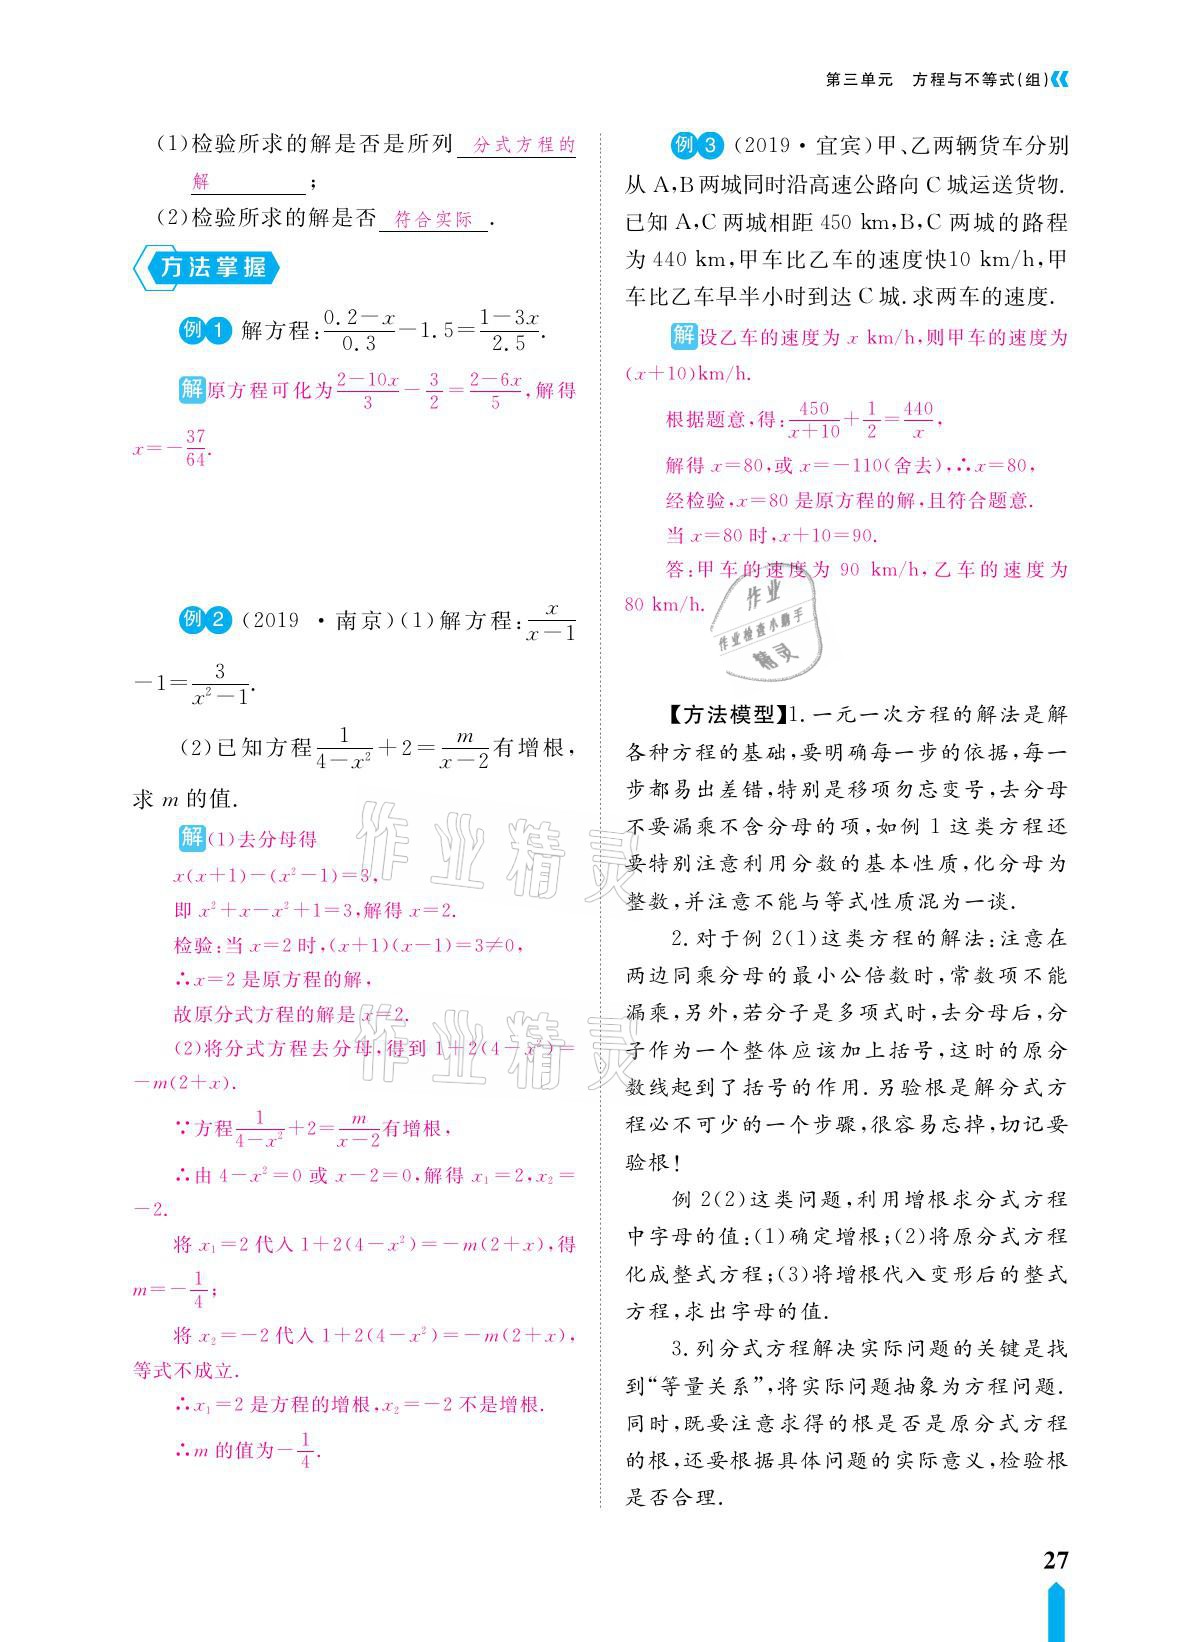 第三单元　方程与不等式(组)
(1)检验所求的解是否是所列 分式方程的
解 ;
(2)检验所求的解是否 符合实际 .
方法掌握
例1 解方程:(0.2-x)/0.3-1.5=(1-3x)/2.5.
解 原方程可化为(2-10x)/3-3/2=(2-6x)/5,解得
x=-37/64.
例2 (2019·南京)(1)解方程:x/(x-1)
-1=3/(x²-1).
(2)已知方程1/(4-x²)+2=m/(x-2)有增根,
求 m 的值.
解 (1)去分母得
x(x+1)-(x²-1)=3,
即 x²+x-x²+1=3,解得 x=2.
检验:当 x=2 时,(x+1)(x-1)=3≠0,
∴x=2 是原方程的解,
故原分式方程的解是 x=2.
(2)将分式方程去分母,得到 1+2(4-x²)=
-m(2+x).
∵方程1/(4-x²)+2=m/(x-2)有增根,
∴由 4-x²=0 或 x-2=0,解得 x₁=2,x₂=
-2.
将 x₁=2 代入 1+2(4-x²)=-m(2+x),得
m=-1/4;
将 x₂=-2 代入 1+2(4-x²)=-m(2+x),
等式不成立.
∴x₁=2 是方程的增根,x₂=-2 不是增根.
∴m 的值为-1/4.
例3 (2019·宜宾)甲、乙两辆货车分别
从 A,B两城同时沿高速公路向 C 城运送货物.
已知 A,C 两城相距 450 km,B,C 两城的路程
为 440 km,甲车比乙车的速度快10 km/h,甲
车比乙车早半小时到达 C 城.求两车的速度.
解 设乙车的速度为 x km/h,则甲车的速度为
(x+10)km/h.
根据题意,得:450/(x+10)+1/2=440/x,
解得 x=80,或 x=-110(舍去),∴x=80,
经检验,x=80 是原方程的解,且符合题意.
当 x=80 时,x+10=90.
答:甲车的速度为 90 km/h,乙车的速度为
80 km/h.
作业
作业检查小助手
精灵
【方法模型】1.一元一次方程的解法是解
各种方程的基础,要明确每一步的依据,每一
步都易出差错,特别是移项勿忘变号,去分母
不要漏乘不含分母的项,如例 1 这类方程还
要特别注意利用分数的基本性质,化分母为
整数,并注意不能与等式性质混为一谈.
2.对于例 2(1)这类方程的解法:注意在
两边同乘分母的最小公倍数时,常数项不能
漏乘,另外,若分子是多项式时,去分母后,分
子作为一个整体应该加上括号,这时的原分
数线起到了括号的作用.另验根是解分式方
程必不可少的一个步骤,很容易忘掉,切记要
验根!
例 2(2)这类问题,利用增根求分式方程
中字母的值:(1)确定增根;(2)将原分式方程
化成整式方程;(3)将增根代入变形后的整式
方程,求出字母的值.
3.列分式方程解决实际问题的关键是找
到“等量关系”,将实际问题抽象为方程问题.
同时,既要注意求得的根是否是原分式方程
的根,还要根据具体问题的实际意义,检验根
是否合理.
作业精灵
作业精灵
27